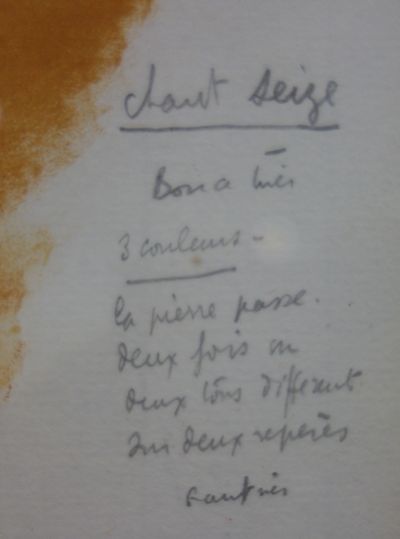 chant seize
Bon a tirer
3 couleurs -
la pierre passe.
deux fois en
deux tons différent
sur deux repères